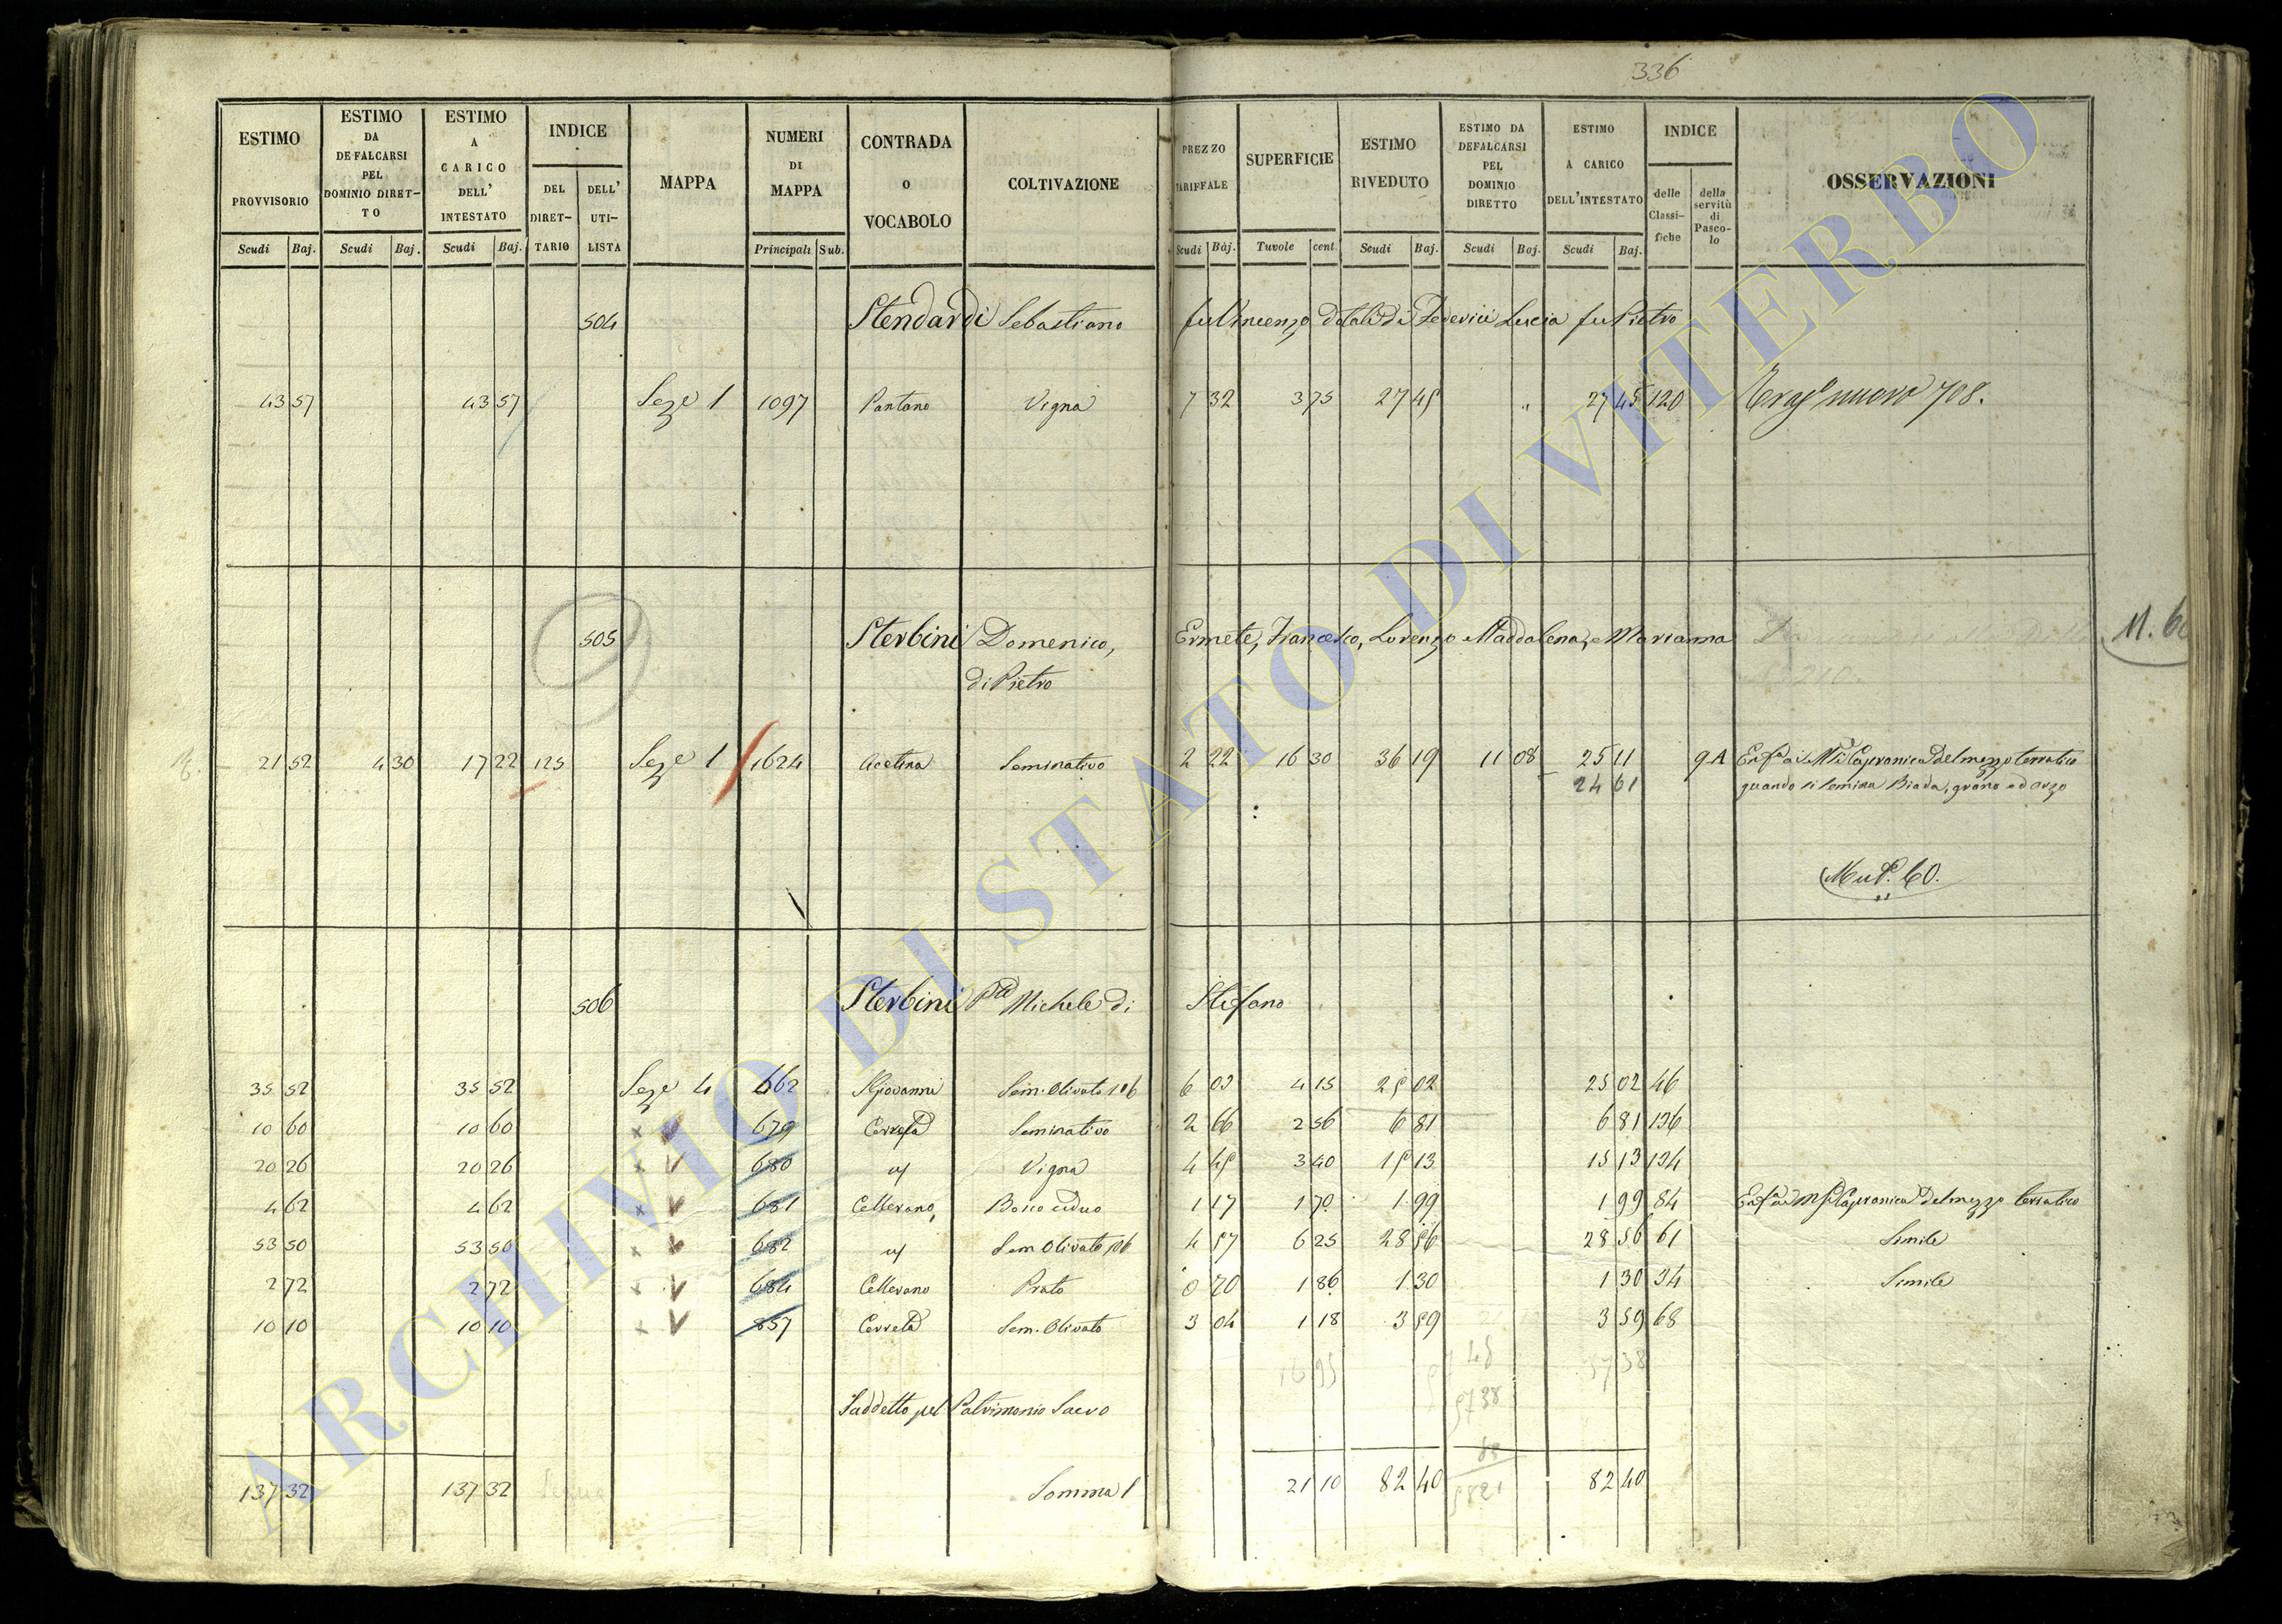 336
ESTIMO PROVVISORIO Scudi Baj. ESTIMO DA DEFALCARSI PEL DOMINIO DIRETTO Scudi Baj. ESTIMO A CARICO DELL' INTESTATO Scudi Baj. INDICE DEL DIRETTARIO DELL' UTILISTA MAPPA NUMERI DI MAPPA Principali Sub. CONTRADA O VOCABOLO COLTIVAZIONE PREZZO TARIFFALE Scudi Baj. SUPERFICIE Tavole cent. ESTIMO RIVEDUTO Scudi Baj. ESTIMO DA DEFALCARSI PEL DOMINIO DIRETTO Scudi Baj. ESTIMO A CARICO DELL'INTESTATO Scudi Baj. INDICE delle Classifiche della servitù di Pascolo OSSERVAZIONI
504 Stendardi Sebastiano fu Vincenzo dotali di Federici Lucia fu Pietro
43 57 43 57 Seze 1 1097 Pantano Vigna 7 32 3 75 27 45 " 27 45 120 nuovo 708.
505 Sterbini Domenico, Ermete, Francesco, Lorenzo Maddalena, e Marianna M. 60
di Pietro
21 52 4 30 17 22 125 Seze 1 1624 Acetina Seminativo 2 22 16 30 36 19 11 08 25 11 9A Capronica del mezzo terratico
24 61 quando si semina Biada, grano ed orzo
Mut. 60.
506 Sterbini Michele di Stefano
35 52 35 52 Seze 4 662 S Giovanni Sem. Olivato 106 6 03 4 15 25 02 25 02 46
10 60 10 60 x V 679 Cerreta Seminativo 2 66 2 56 6 81 6 81 136
20 26 20 26 x V 680 Vigna 4 45 3 40 15 13 15 13 134
4 62 4 62 x V 681 Cellerano, Bosco ceduo 1 17 1 70 1 99 1 99 84 Capronica del mezzo terratico
53 50 53 50 x V 682 Sem Olivato 106 4 57 6 25 28 56 28 56 61 Simile
2 72 2 72 x V 684 Cellerano Prato 0 70 1 86 1 30 1 30 34 Simile
10 10 10 10 x V 857 Cerreta Sem. Olivato 3 04 1 18 3 59 3 59 68
16 95 57 38
57 38
Suddetto pel Patrimonio Sacro
137 32 137 32 Somma 21 10 82 40 82 40
ARCHIVIO DI STATO DI VITERBO